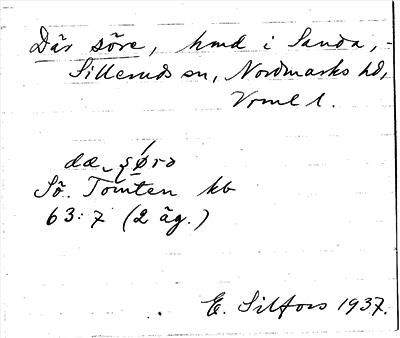 Där söre, hmd i Sanda,
Silleruds sn, Nordmarks hd,
Vrml l.
dæ ʂørə
Sö. Tomten kb
63:7 (2 äg.)
E. Silfors 1937.